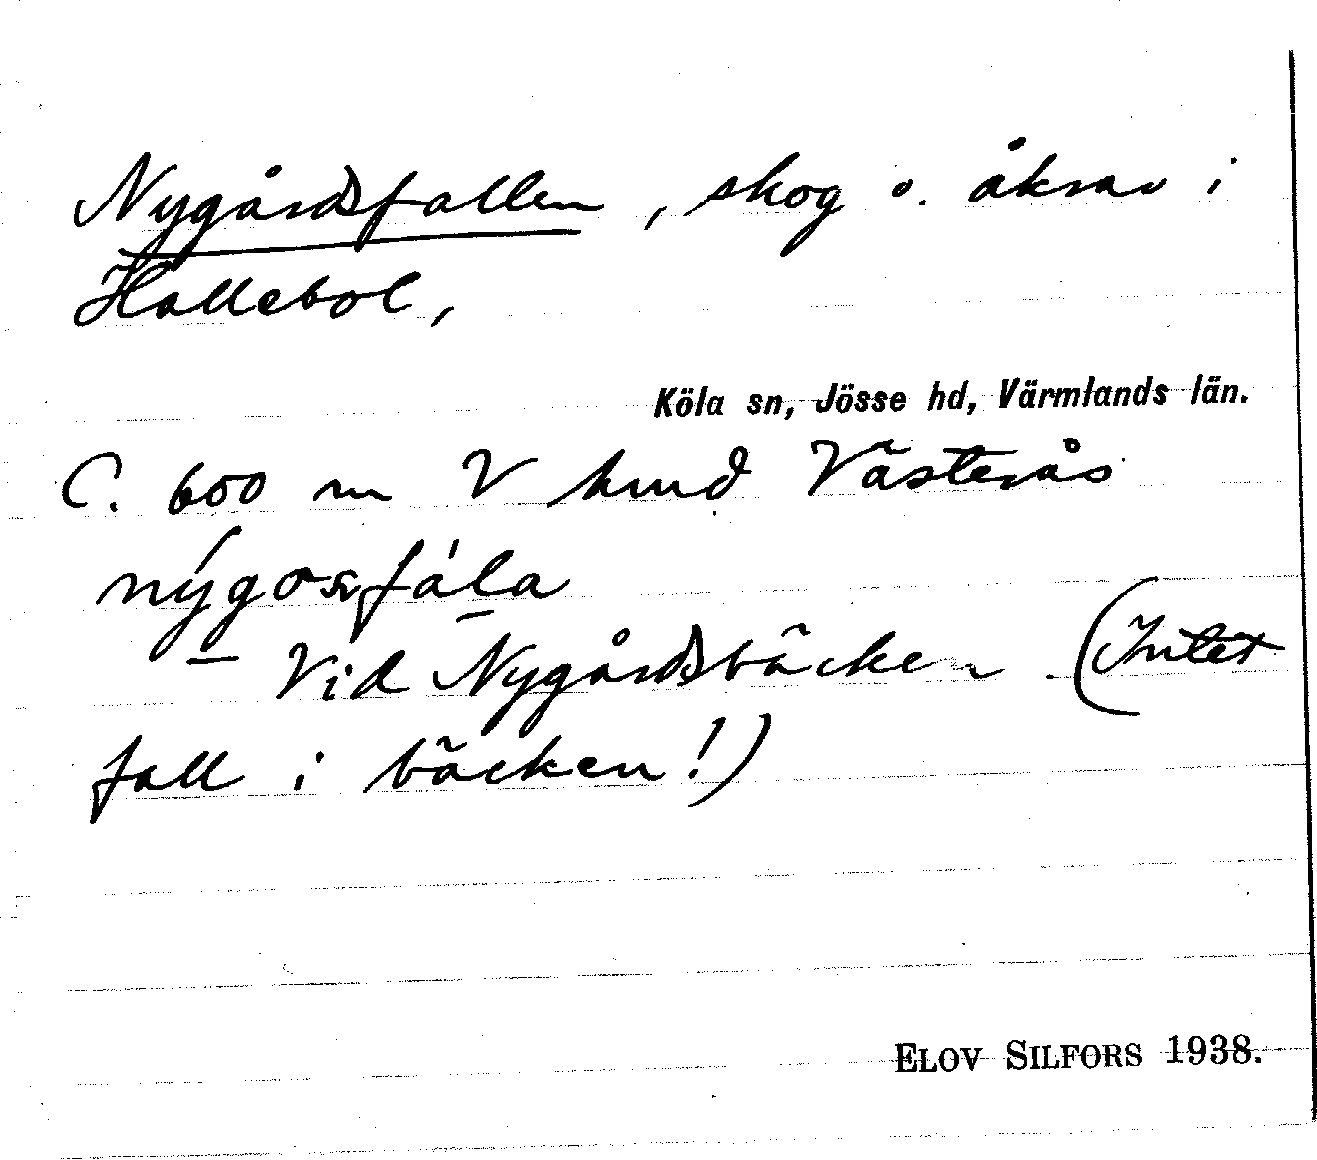 Nygårdsfallen, skog o. åkrar i
Hallebol,
Köla sn, Jösse hd, Värmlands län.
C. 600 m V hmd Västerås
nýgoṣfála
– Vid Nygårdsbäcken (Intet
fall i bäcken!)
ELOV SILFORS 1938.